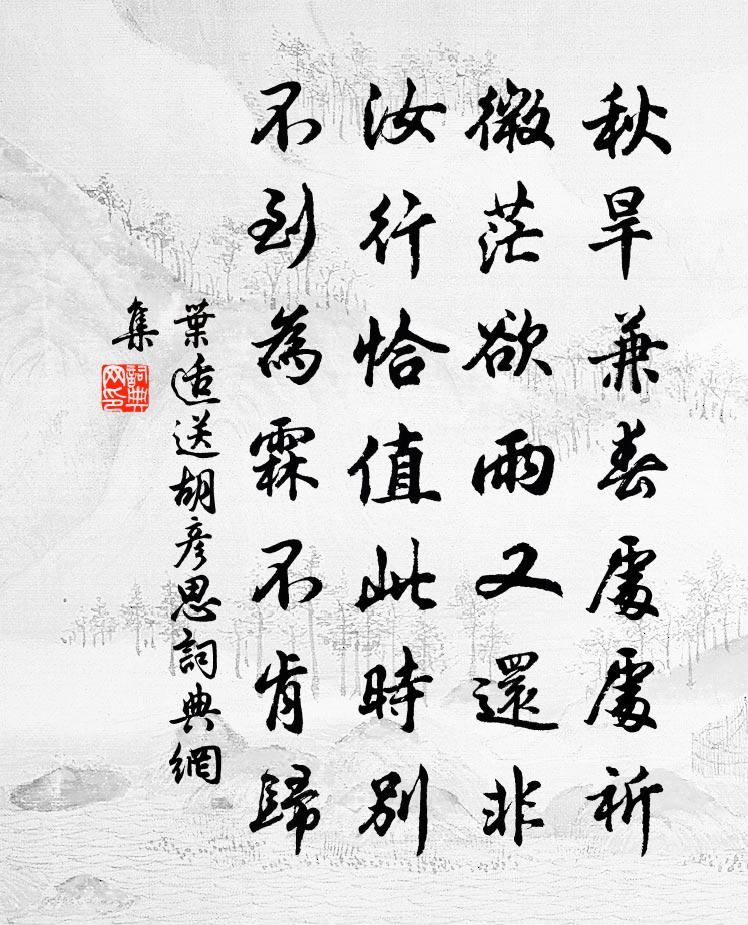 秋旱兼春處處祈
微茫欲雨又還非
汝行恰值此時別
不到為霖不肯歸
葉适送胡彦思詞典網
集
詞典
网印